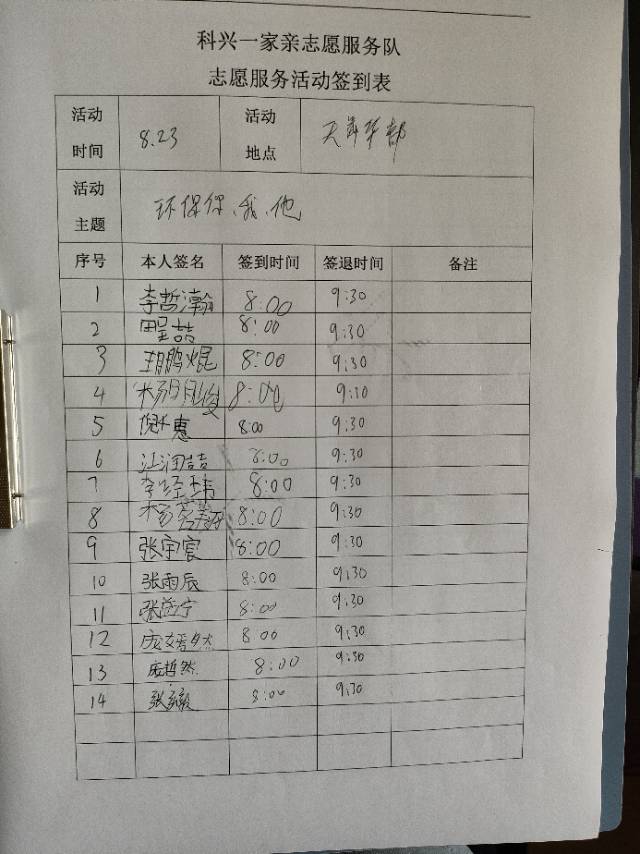 科兴一家亲志愿服务队
志愿服务活动签到表
活动时间 8.23 活动地点 天
活动主题 环保你、我、他
序号 本人签名 签到时间 签退时间 备注
1 李哲瀚 8:00 9:30
2 喆 8:00 9:30
3 鹏焜 8:00 9:30
4 杨 8:00 9:30
5 倪 惠 8:00 9:30
6 江润喆 8:00 9:30
7 李经玮 8:00 9:30
8 杨 8:00 9:30
9 张宇宸 8:00 9:30
10 张雨辰 8:00 9:30
11 张 宁 8:00 9:30
12 庞 8:00 9:30
13 庞哲然 8:00 9:30
14 张 毅 8:00 9:30